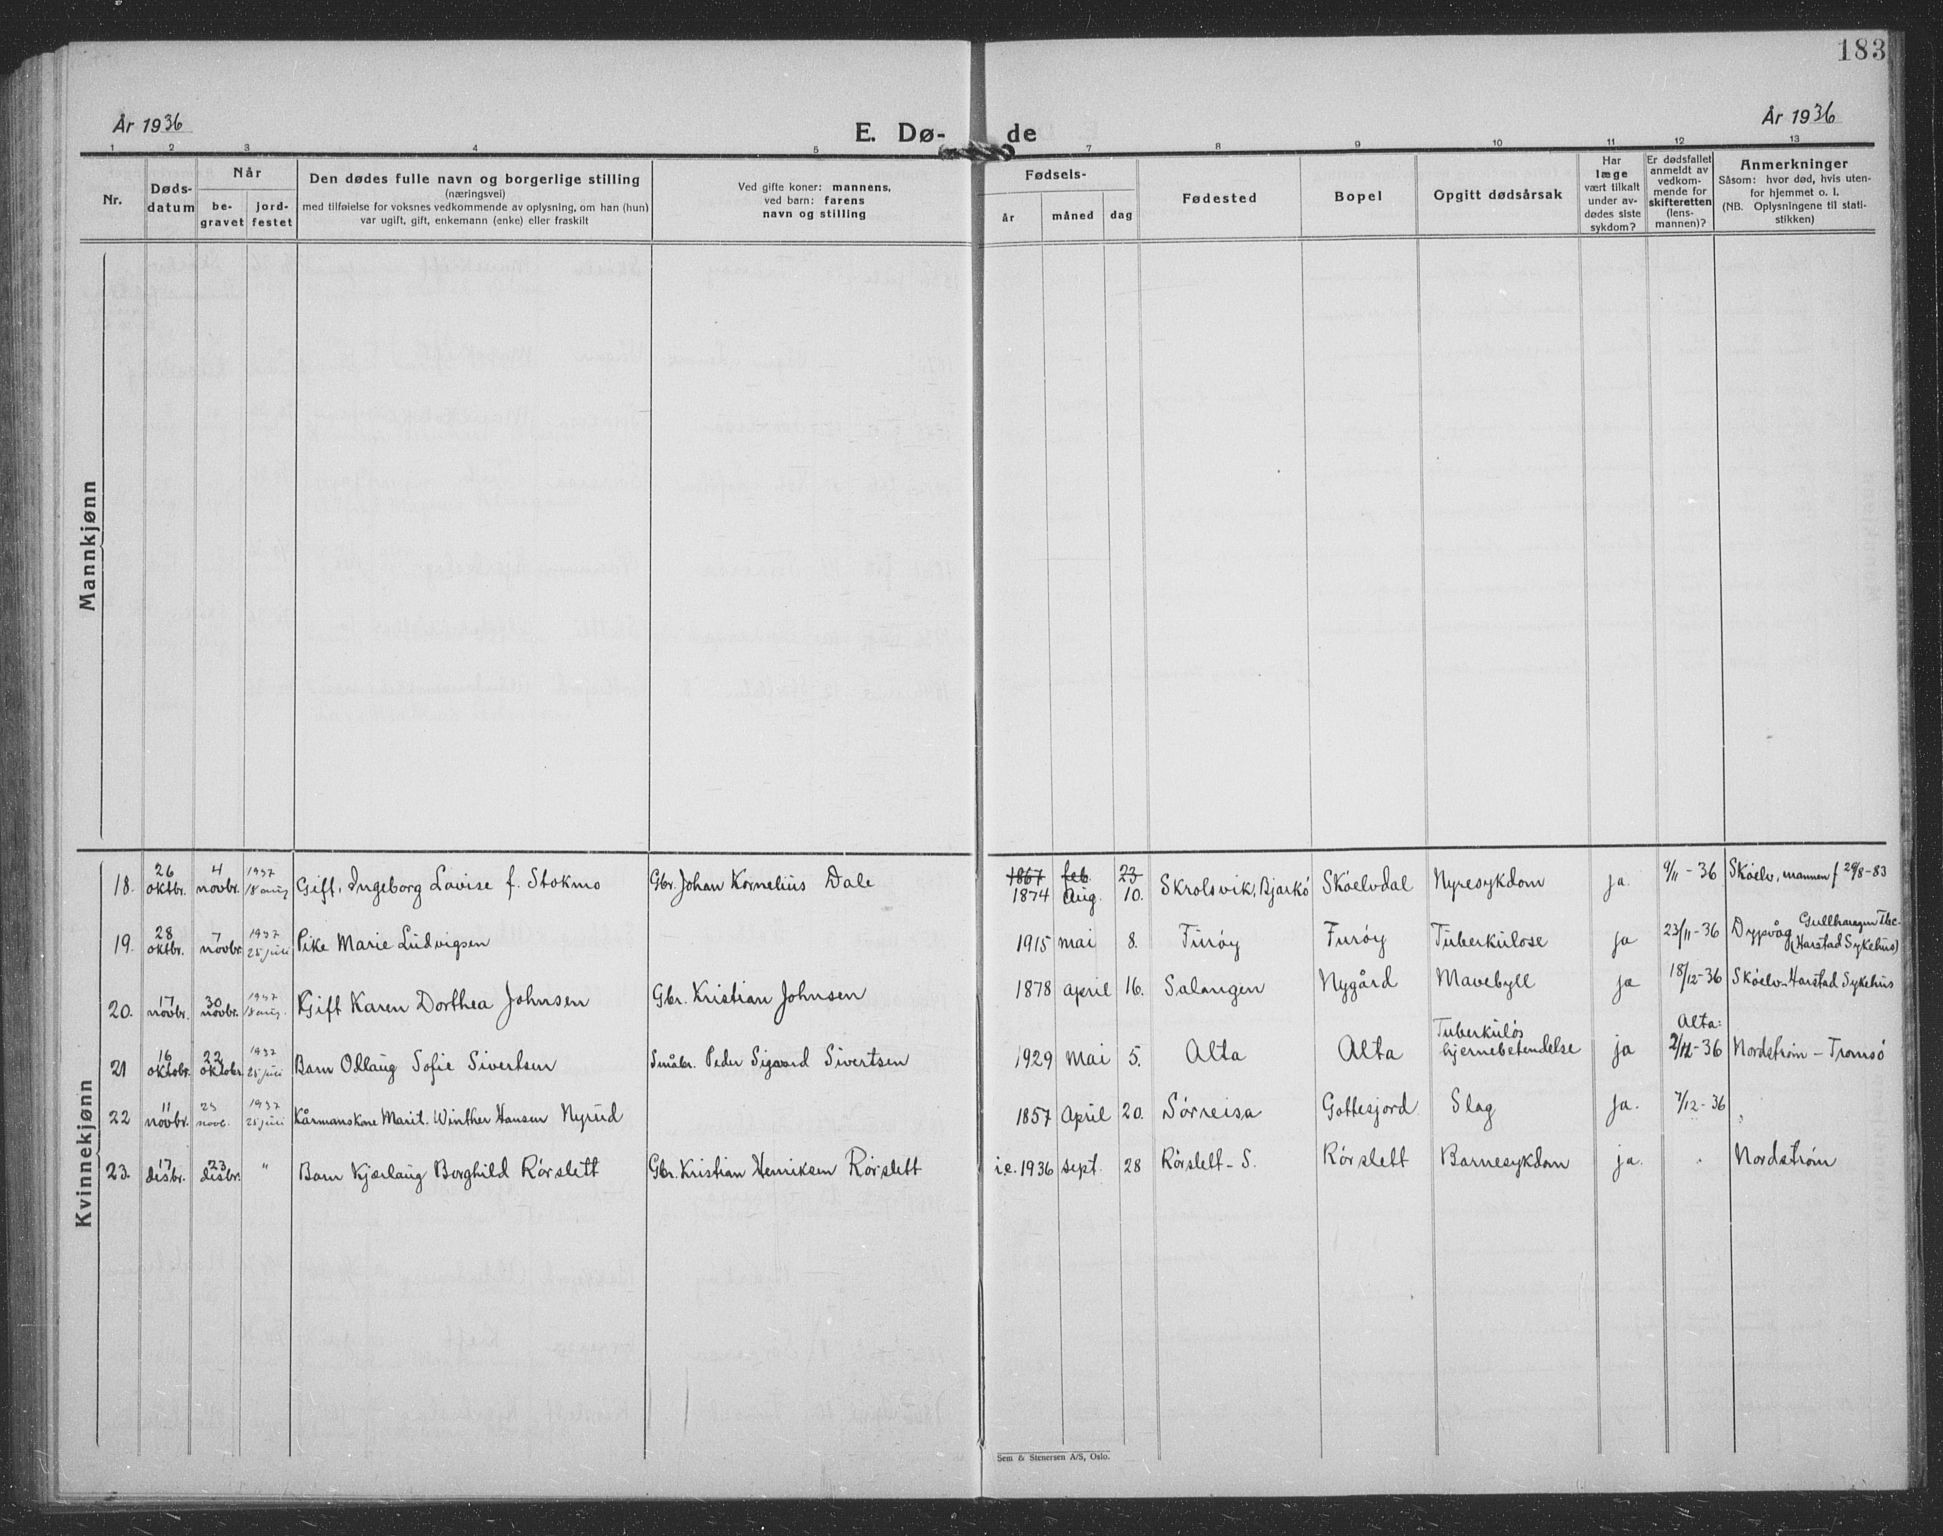 183
År 1936
E. Dø-
de
År 1936
1 2 3 4 5 6 7 8 9 10 11 12 13
Nr.
Døds-
datum
Når
be-
gravet
jord-
festet
Den dødes fulle navn og borgerlige stilling
(næringsvei)
med tilføielse for voksnes vedkommende av oplysning, om han (hun)
var ugift, gift, enkemann (enke) eller fraskilt
Ved gifte koner: mannens,
ved barn: farens
navn og stilling
Fødsels-
år
måned
dag
Fødested
Bopel
Opgitt dødsårsak
Har
læge
vært tilkalt
under av-
dødes siste
sykdom?
Er dødsfallet
anmeldt av
vedkom-
mende for
skifteretten
(lens-
mannen)?
Anmerkninger
Såsom: hvor død, hvis uten-
for hjemmet o. l.
(NB. Oplysningene til stati-
stikken)
Mannkjønn
Kvinnekjønn
18. 26 oktbr. 4 novbr. 1937 18 aug Gift, Ingeborg Lovise f. Stokmo Gbr. Johan Kornelius Dale 1867 feb. 23 1874 Aug. 10. Skrolsvik, Bjarkö Sköelvdal Nyresykdom ja. 9/11-36 Sköelv, mannen f 29/8-83
19. 28 oktbr. 7 novbr. 1937 25 juli Pike Marie Ludvigsen 1915 mai 8. Furöy Furöy Tuberkulose ja 23/11-36 Dyppvåg (Harstad Sykehus)
20. 17 novbr. 30 novbr. 1937 18 aug. Gift Karen Dorthea Johnsen Gbr. Kristian Johnsen 1878 april 16. Salangen Nygård Mavebyll ja 18/12-36 Sköelv- Harstad Sykehus
21 16 oktobr. 22 oktobr. 1937 25 juli Barn Ollaug Sofie Sivertsen Småbr. Peder Sigvard Sivertsen 1929 Mai 5. Alta Alta Tuberkulös hjernebetendelse ja Alta: 2/12-36 Nordström - Tromsö
22 11 novbr. 23 novb. 1937 25 juli Kårmanskone Marit. Winther Hansen Nyrud 1857 April 20. Sörreisa Gottesjord Slag ja. 7/12-36
23. 17 desbr. 23 desbr. " Barn Kjærlaug Borghild Rörslett Gbr. Kristian Henriksen Rörslett i.e. 1936 sept. 28 Rörslett - S. Rörslett Barnesykdom ja. Nordström
Sem & Stenersen A/S, Oslo.